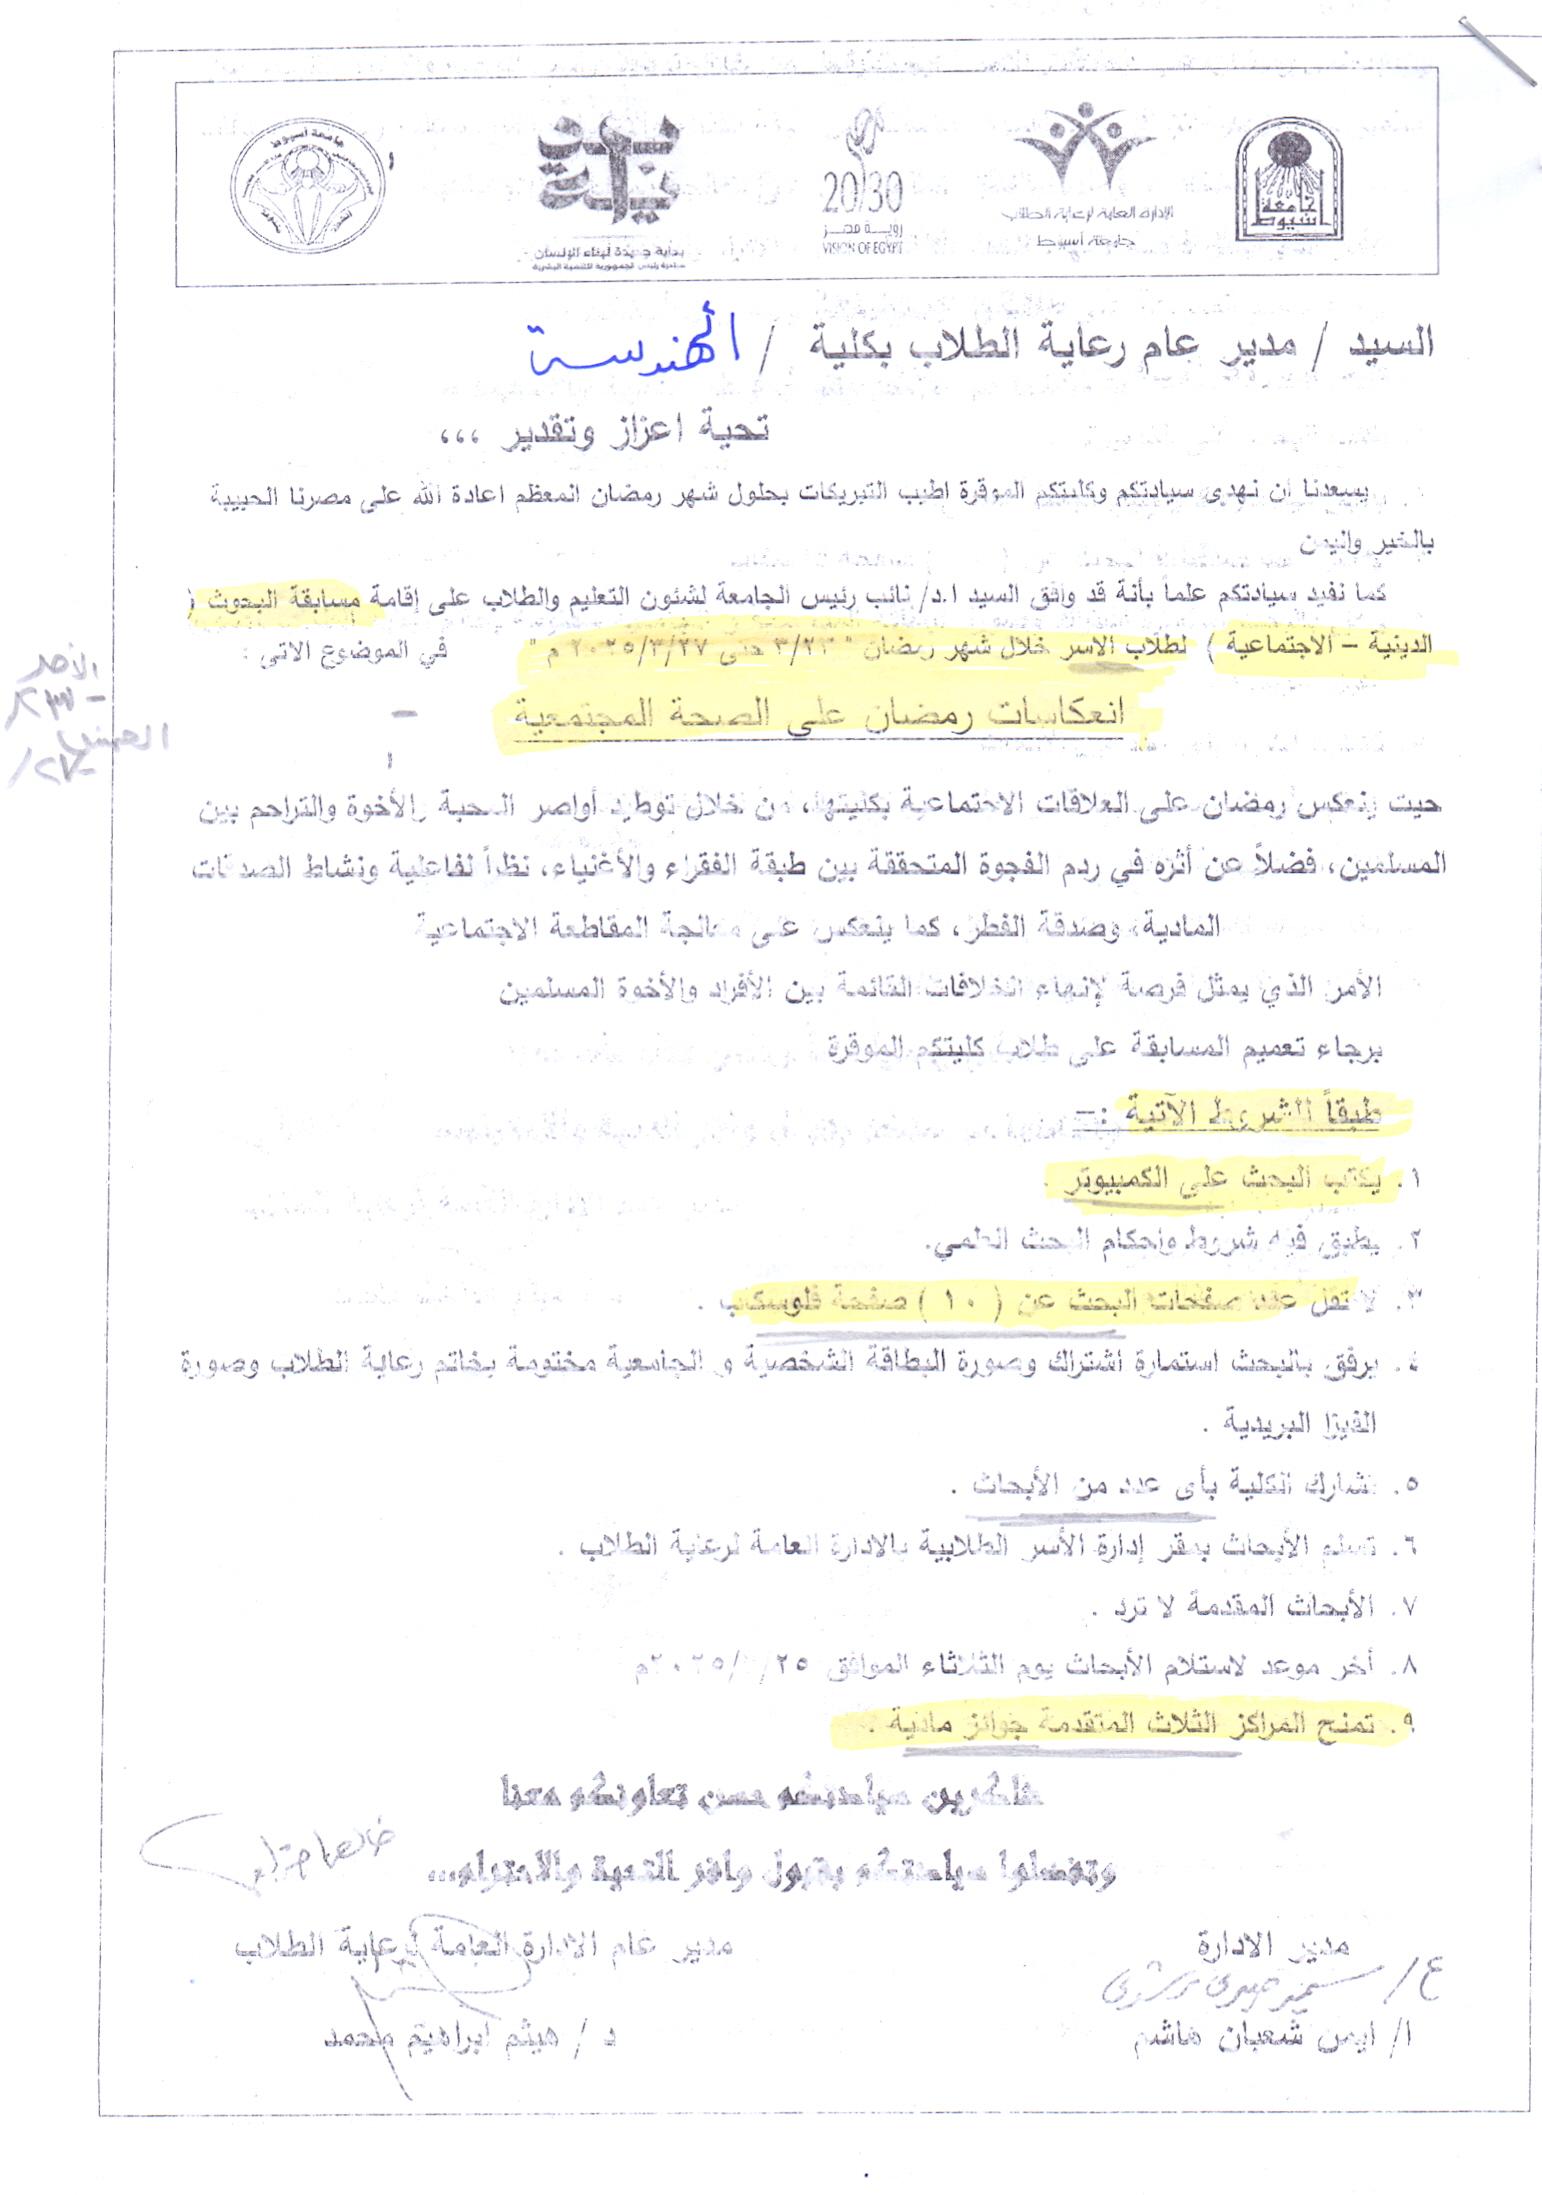 جامعة أسيوط
بداية جديدة لبناء الإنسان
20/30
رؤية مصر
VISION OF EGYPT
الإدارة العامة لرعاية الطلاب
جامعة أسيوط
جامعة أسيوط
السيد / مدير عام رعاية الطلاب بكلية / الهندسة
تحية اعزاز وتقدير ،،،
يسعدنا ان نهدى سيادتكم وكليتكم الموقرة اطيب التبريكات بحلول شهر رمضان المعظم اعادة الله على مصرنا الحبيبة
بالخير واليمن
كما نفيد سيادتكم علماً بأنة قد وافق السيد ا.د/ نائب رئيس الجامعة لشئون التعليم والطلاب على إقامة مسابقة البحوث (
الدينية – الاجتماعية ) لطلاب الاسر خلال شهر رمضان " ٣/٢٣ حتى ٢٠٢٥/٣/٢٧ م " في الموضوع الاتى :
الأحد
٢٣
الخميس
٢٧
انعكاسات رمضان على الصحة المجتمعية
حيث ينعكس رمضان على العلاقات الاجتماعية بكليتها، من خلال توطيد أواصر المحبة والأخوة والتراحم بين
المسلمين، فضلاً عن أثره في ردم الفجوة المتحققة بين طبقة الفقراء والأغنياء، نظراً لفاعلية ونشاط الصدقات
المادية، وصدقة الفطر، كما ينعكس على معالجة المقاطعة الاجتماعية
الأمر الذي يمثل فرصة لإنهاء الخلافات القائمة بين الأفراد والأخوة المسلمين
برجاء تعميم المسابقة على طلاب كليتكم الموقرة
طبقاً للشروط الآتية :–
١. يكتب البحث على الكمبيوتر .
٢. يطبق فيه شروط واحكام البحث العلمي.
٣. لا تقل عدد صفحات البحث عن ( ١٠ ) صفحة فلوسكاب .
٤. يرفق بالبحث استمارة اشتراك وصورة البطاقة الشخصية و الجامعية مختومة بخاتم رعاية الطلاب وصورة
الفيزا البريدية .
٥. تشارك الكلية بأى عدد من الأبحاث .
٦. تسلم الأبحاث بمقر إدارة الأسر الطلابية بالادارة العامة لرعاية الطلاب .
٧. الأبحاث المقدمة لا ترد .
٨. أخر موعد لاستلام الأبحاث يوم الثلاثاء الموافق ٢٠٢٥/٣/٢٥م
٩. تمنح المراكز الثلاث المتقدمة جوائز مادية .
شاكرين سيادتكم حسن تعاونكم معنا
وتفضلوا سيادتكم بقبول وافر التحية والاحترام...
مدير الادارة
مدير عام الادارة العامة لرعاية الطلاب
ا/ ايمن شعبان هاشم
د / هيثم ابراهيم محمد